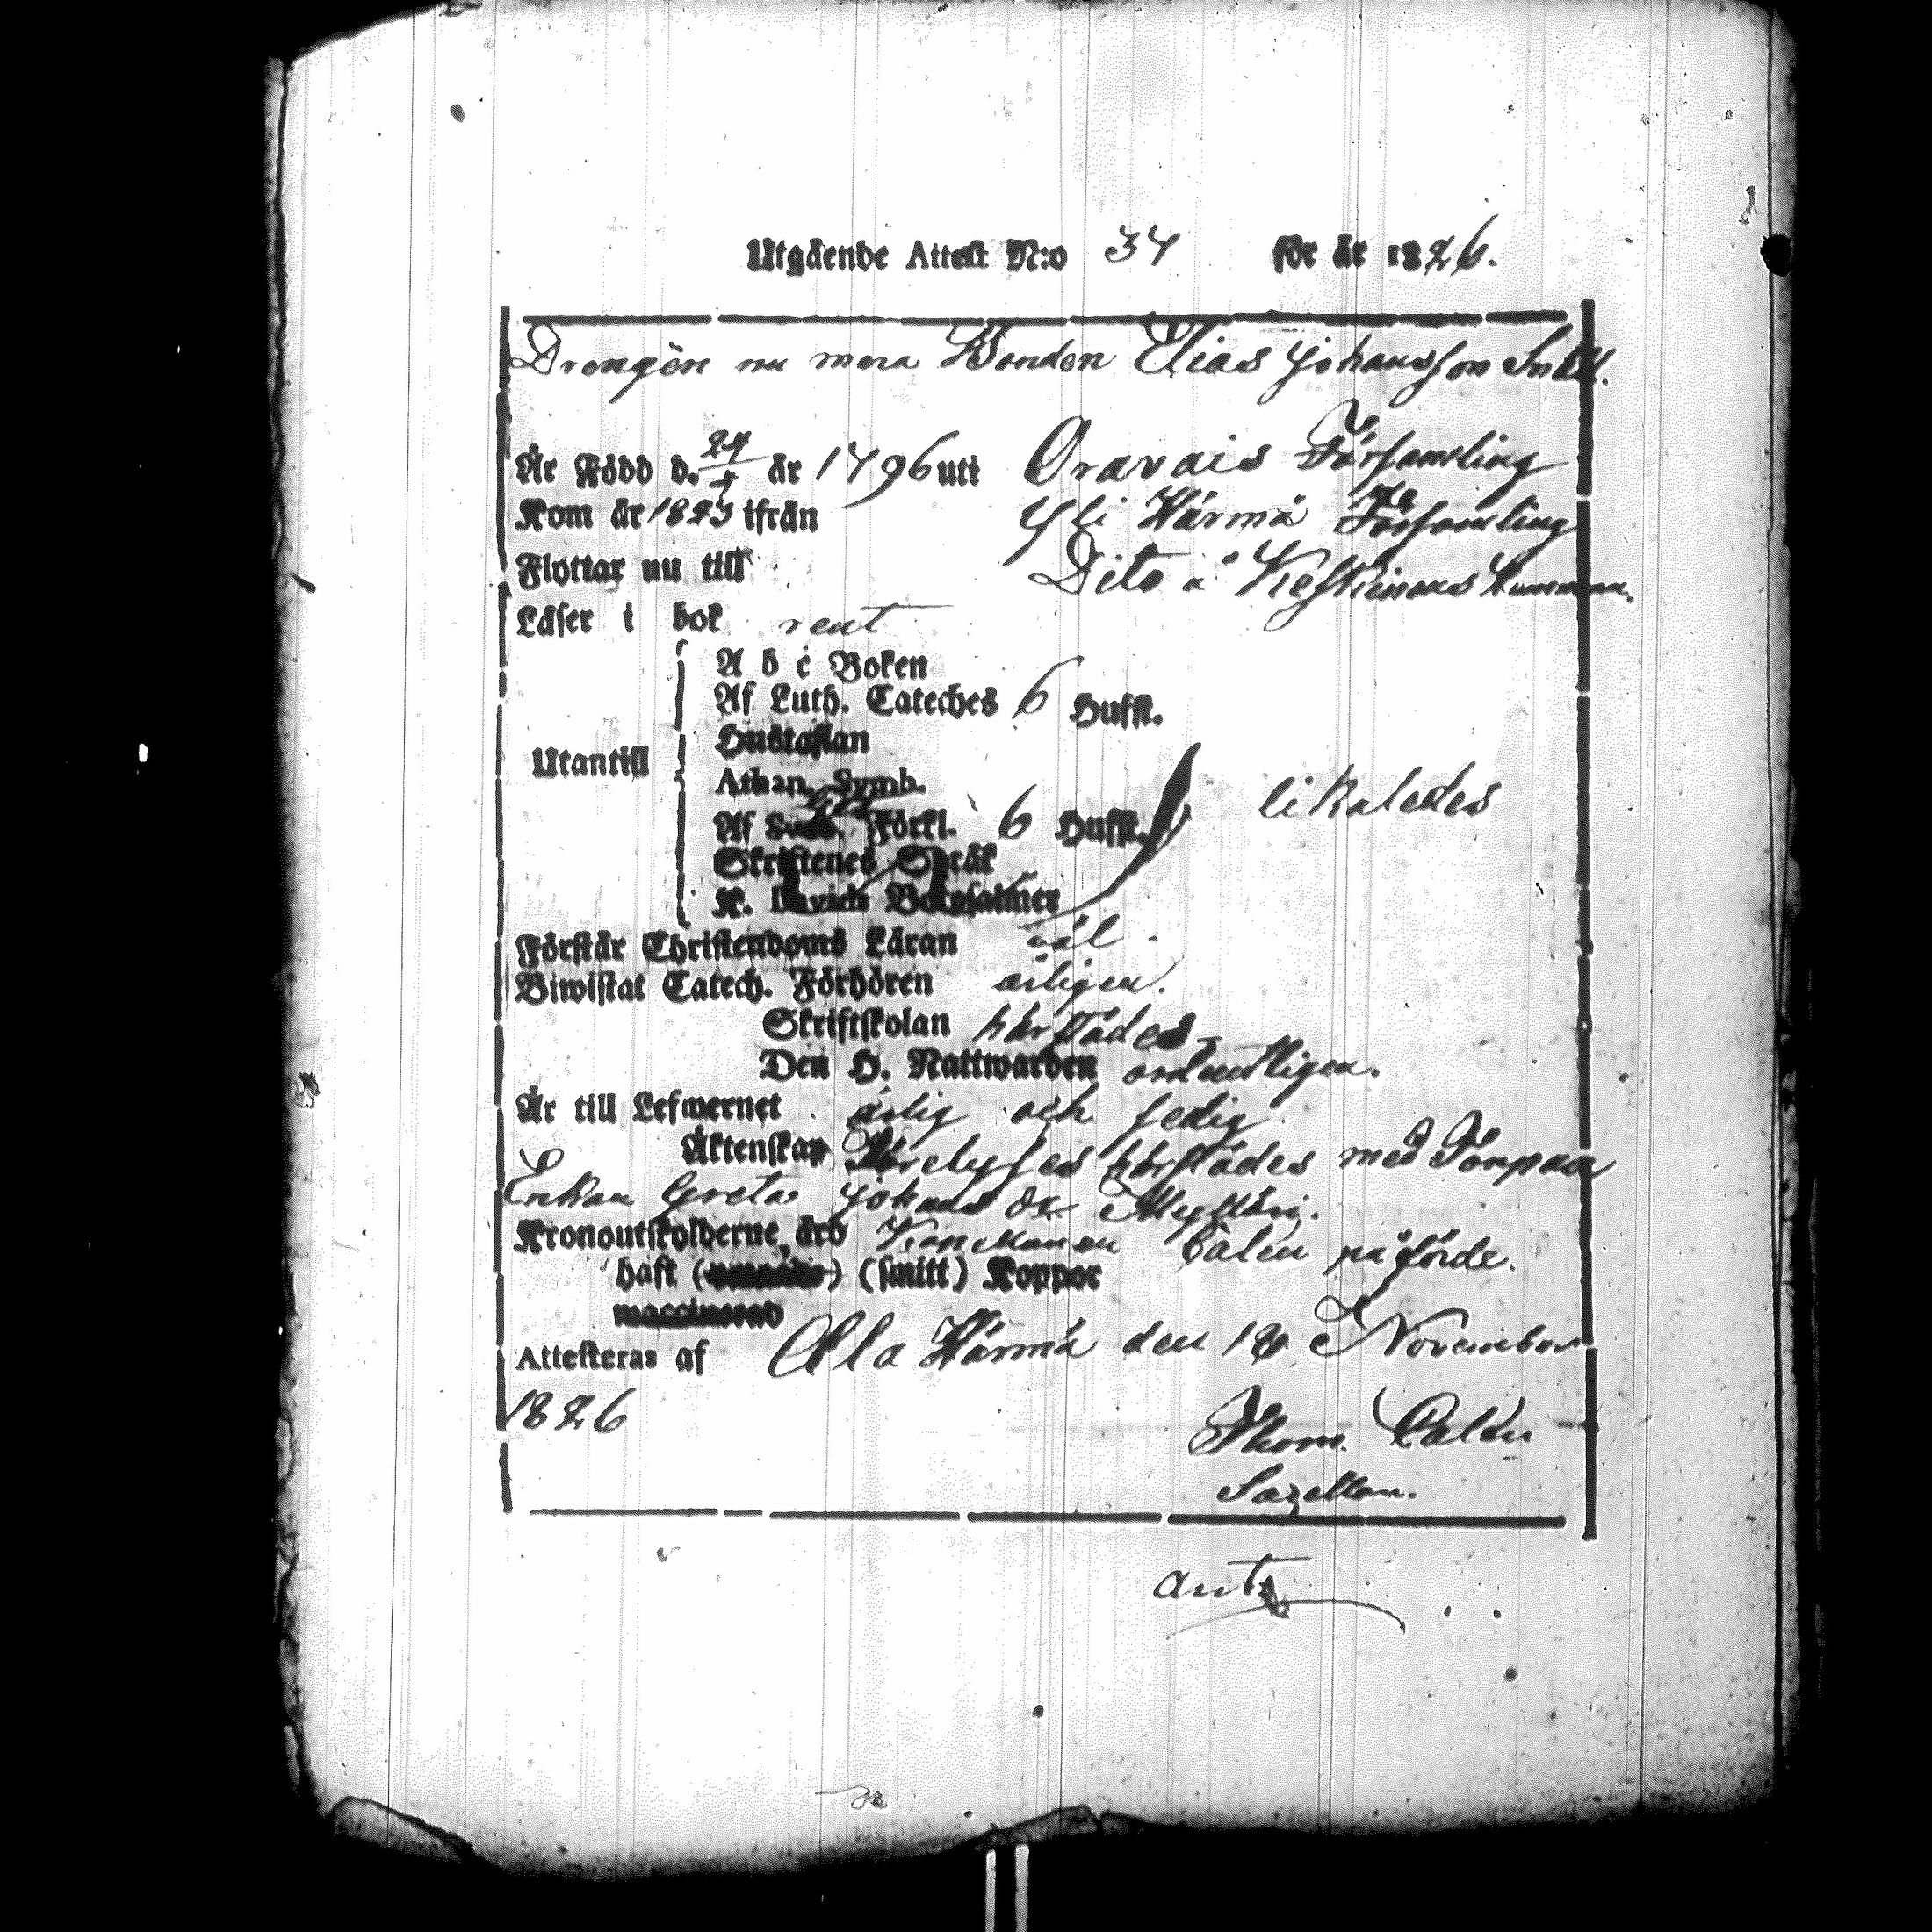 Utgående Attest N:o 34 för år 1826.
Drengen nu mera Bonden Elias Johansson
Är Född d. 24/4 år 1796 uti Oravais Församling
Kom år 1823 ifrån Yli Härmä Församling
Flyttar nu till Dito å
Läser i bok rent
A b c Boken
Af Luth. Cateches 6 Hufst.
Hustaflan
Utantill
Athan. Symb.
Af Förkl. 6 Hufst. likaledes
Skriftenes Språk
K. Davids Botpsalmer
Förstår Christendoms Läran väl.
Biwistat Catech. Förhören årligen.
Skriftskolan härstädes
Den H. Nattwarden ordentligen.
Är till Lefwernet ärlig och sedig
Äktenskap härstädes med
Enkan Greta Johans dr
Kronoutskylderne äro påförde.
haft (smitt) Koppor
vaccinerad
Attesteras af Ala Härmä den 18 November
1826
Thom. Calén
Sacellan.